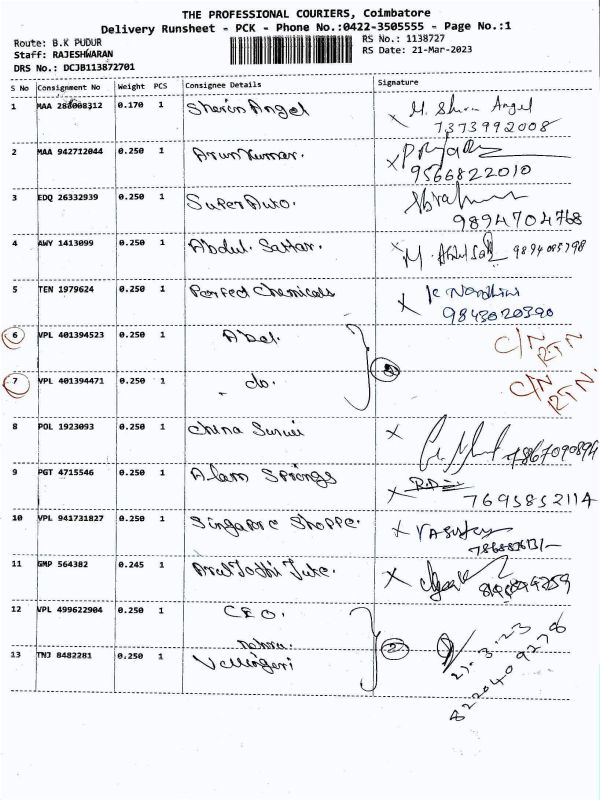 THE PROFESSIONAL COURIERS, Coimbatore
Delivery Runsheet - PCK - Phone No.:0422-3505555 - Page No.:1
Route: B.K PUDUR
RS No.: 1138727
Staff: RAJESHWARAN
RS Date: 21-Mar-2023
DRS No.: DCJB113872701
S No Consignment No Weight PCS Consignee Details Signature
1 MAA 288008312 0.170 1 Sherin Angel X M. Angel
7373992008
2 MAA 942712044 0.250 1 Arun Kumar. X
9566822010
3 EDQ 26332939 0.250 1 Super Auto.
9894704768
4 AWY 1413099 0.250 1 Abdul. Sattar. X M.
5 TEN 1979624 0.250 1 Perfect Chemicals X K. Nandhini
9843020390
6 VPL 401394523 0.250 1 Abel. C/N RTN
7 VPL 401394471 0.250 1 do. C/N RTN.
8 POL 1923093 0.250 1 China X 7867090894
9 PGT 4715546 0.250 1 Alam Springs X
7695852114
10 VPL 941731827 0.250 1 Singapore Shoppe. X
11 GMP 564382 0.245 1 Arul Jodhi X
12 VPL 499622904 0.250 1 CEO. 2
21.3.23
13 TNJ 8482281 0.250 1